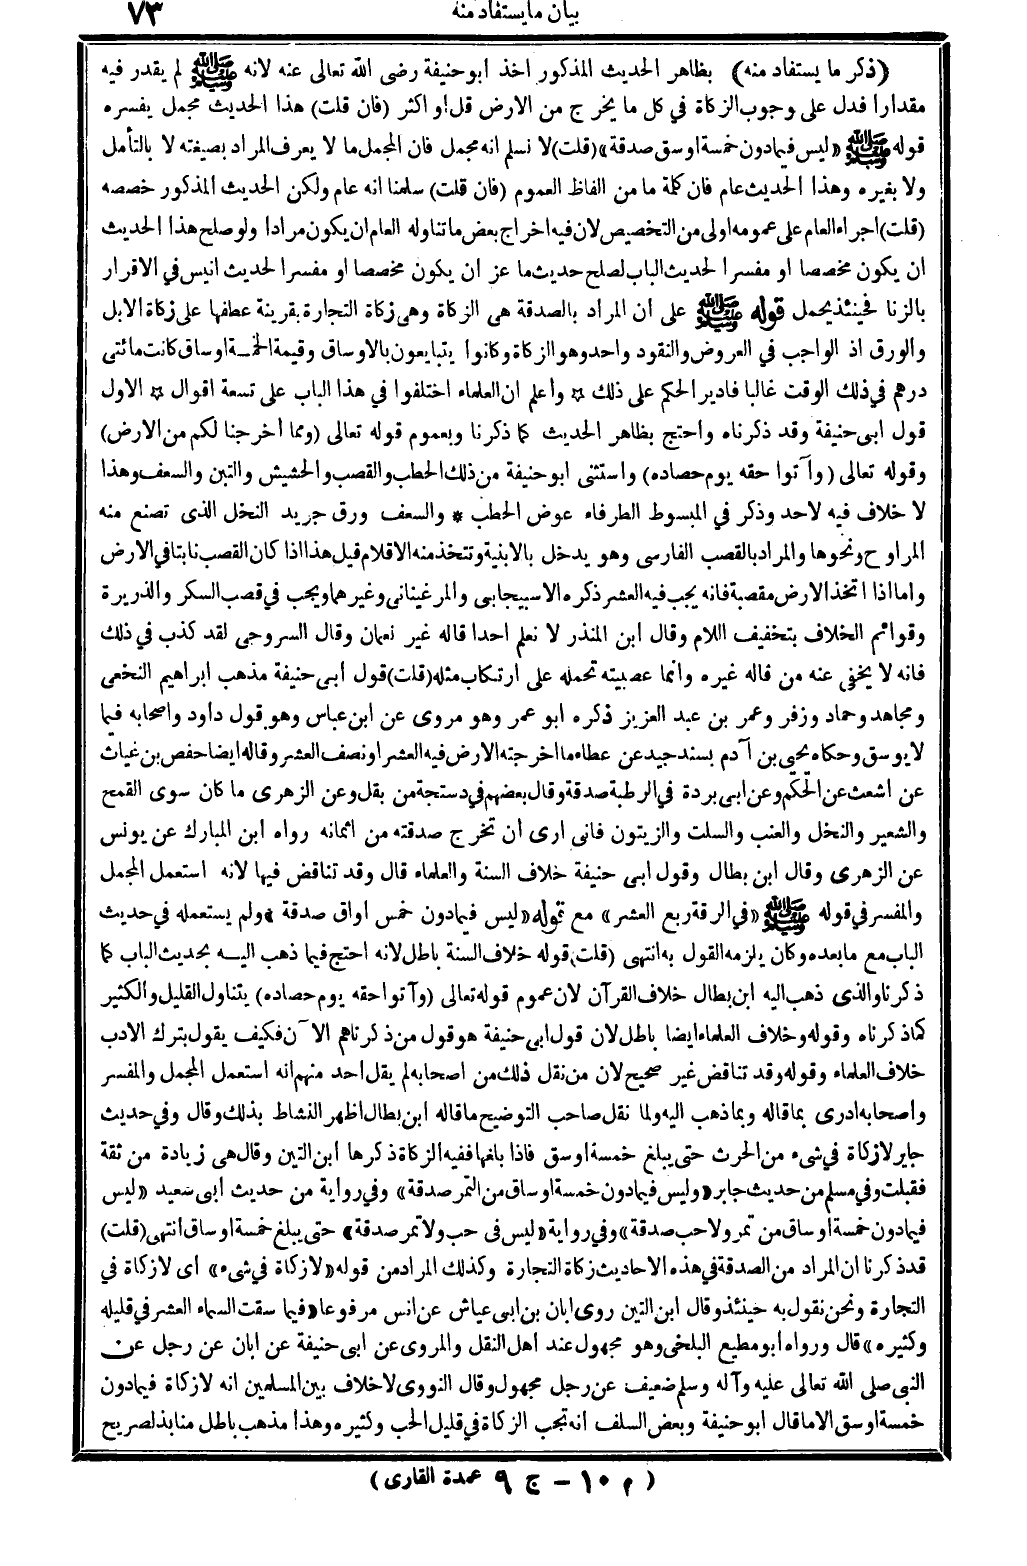 بيان مايستفاد منه ٧٣
(ذكر ما يستفاد منه) بظاهر الحديث المذكور اخذ ابو حنيفة رضى الله تعالى عنه لانه ﷺ لم يقدر فيه
مقدارا فدل على وجوب الزكاة في كل ما يخرج من الارض قل او اكثر (فان قلت) هذا الحديث مجمل يفسره
قوله ﷺ «ليس فيما دون خمسة اوسق صدقة» (قلت) لا نسلم انه مجمل فان المجمل ما لا يعرف المراد بصيغته لا بالتأمل
ولا بغيره وهذا الحديث عام فان كلمة ما من الفاظ العموم (فان قلت) سلمنا انه عام ولكن الحديث المذكور خصصه
(قلت) اجراء العام على عمومه اولى من التخصيص لان فيه اخراج بعض ما تناوله العام ان يكون مرادا ولو صلح هذا الحديث
ان يكون مخصصا او مفسرا لحديث الباب لصلح حديث ما عز ان يكون مخصصا او مفسرا لحديث انيس في الاقرار
بالزنا فحينئذ يحمل قوله ﷺ على أن المراد بالصدقة هى الزكاة وهى زكاة التجارة بقرينة عطفها على زكاة الابل
والورق اذ الواجب في العروض والنقود واحد وهو الزكاة وكانوا يتبايعون بالاوساق وقيمة الخمسة اوساق كانت مائتى
درهم في ذلك الوقت غالبا فادير الحكم على ذلك ☆ وأعلم ان العلماء اختلفوا في هذا الباب على تسعة اقوال ☆ الاول
قول ابى حنيفة وقد ذكرناه واحتج بظاهر الحديث كما ذكرنا وبعموم قوله تعالى (ومما أخرجنا لكم من الارض)
وقوله تعالى (وآتوا حقه يوم حصاده) واستثنى ابو حنيفة من ذلك الحطب والقصب والحشيش والتبن والسعف وهذا
لا خلاف فيه لاحد وذكر في المبسوط الطرفاء عوض الحطب * والسعف ورق جريد النخل الذى تصنع منه
المراوح ونحوها والمراد بالقصب الفارسى وهو يدخل بالابنية وتتخذ منه الاقلام قيل هذا اذا كان القصب نابتا في الارض
واما اذا اتخذ الارض مقصبة فانه يجب فيه العشر ذكره الاسبيجابى والمرغينانى وغيرهما ويجب في قصب السكر والذريرة
وقوائم الخلاف بتخفيف اللام وقال ابن المنذر لا نعلم احدا قاله غير نعمان وقال السروجى لقد كذب في ذلك
فانه لا يخفى عنه من قاله غيره وانما عصبيته تحمله على ارتكاب مثله (قلت) قول أبى حنيفة مذهب ابراهيم النخعى
ومجاهد وحماد وزفر وعمر بن عبد العزيز ذكره ابو عمر وهو مروى عن ابن عباس وهو قول داود واصحابه فيما
لا يوسق وحكاه يحيى بن آدم بسند جيد عن عطاء ما اخرجته الارض فيه العشر او نصف العشر وقاله ايضا حفص بن غياث
عن اشعث عن الحكم وعن ابى بردة في الرطبة صدقة وقال بعضهم في دستجة من بقل وعن الزهرى ما كان سوى القمح
والشعير والنخل والعنب والسلت والزيتون فانى ارى أن تخرج صدقته من اثمانه رواه ابن المبارك عن يونس
عن الزهرى وقال ابن بطال وقول ابى حنيفة خلاف السنة والعلماء قال وقد تناقض فيها لانه استعمل المجمل
والمفسر في قوله ﷺ «في الرقة ربع العشر» مع قوله «ليس فيما دون خمس اواق صدقة» ولم يستعمله في حديث
الباب مع ما بعده وكان يلزمه القول به انتهى (قلت) قوله خلاف السنة باطل لانه احتج فيما ذهب اليه بحديث الباب كما
ذكرنا والذى ذهب اليه ابن بطال خلاف القرآن لان عموم قوله تعالى (وآتوا حقه يوم حصاده) يتناول القليل والكثير
كما ذكرناه وقوله وخلاف العلماء ايضا باطل لان قول ابى حنيفة هو قول من ذكرناهم الآن فكيف يقول بترك الادب
خلاف العلماء وقوله وقد تناقض غير صحيح لان من نقل ذلك من اصحابه لم يقل احد منهم انه استعمل المجمل والمفسر
واصحابه ادرى بما قاله وبما ذهب اليه ولما نقل صاحب التوضيح ما قاله ابن بطال أظهر النشاط بذلك وقال وفي حديث
جابر لا زكاة في شىء من الحرث حتى يبلغ خمسة اوسق فاذا بلغها ففيه الزكاة ذكرها ابن التين وقال هى زيادة من ثقة
فقبلت وفي مسلم من حديث جابر «وليس فيما دون خمسة اوساق من التمر صدقة» وفي رواية من حديث ابى سعيد «ليس
فيما دون خمسة أوساق من تمر ولا حب صدقة» وفي رواية «ليس في حب ولا تمر صدقة» حتى يبلغ خمسة اوساق انتهى (قلت)
قد ذكرنا ان المراد من الصدقة في هذه الاحاديث زكاة التجارة وكذلك المراد من قوله «لا زكاة في شىء» اى لا زكاة في
التجارة ونحن نقول به حينئذ وقال ابن التين روى ابان بن ابى عياش عن انس مرفوعا «فيما سقت السماء العشر في قليله
وكثيره» قال ورواه أبو مطيع البلخى وهو مجهول عند أهل النقل والمروى عن ابى حنيفة عن ابان عن رجل عن
النبى صلى الله تعالى عليه وآله وسلم ضعيف عن رجل مجهول وقال النووى لا خلاف بين المسلمين انه لا زكاة فيما دون
خمسة اوسق الا ما قال ابو حنيفة وبعض السلف انه تجب الزكاة في قليل الحب وكثيره وهذا مذهب باطل منابذ لصريح
(م ١٠ — ج ٩ عمدة القارى)